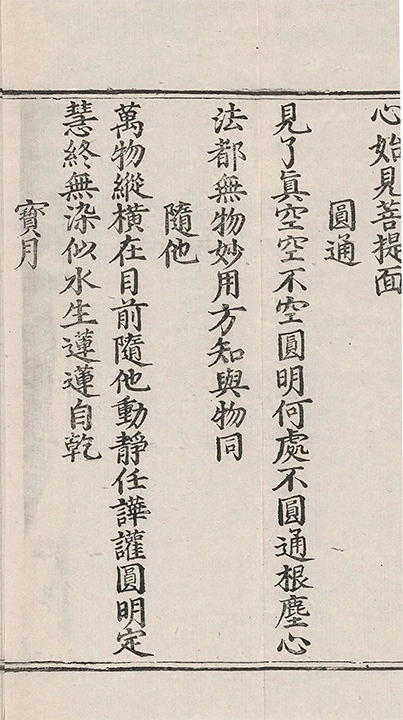 心始見菩提面
圓通
見了眞空空不空圓明何處不圓通根塵心
法都無物妙用方知與物同
隨他
萬物縱橫在目前隨他動靜任譁讙圓明定
慧終無染似水生蓮蓮自乾
寶月